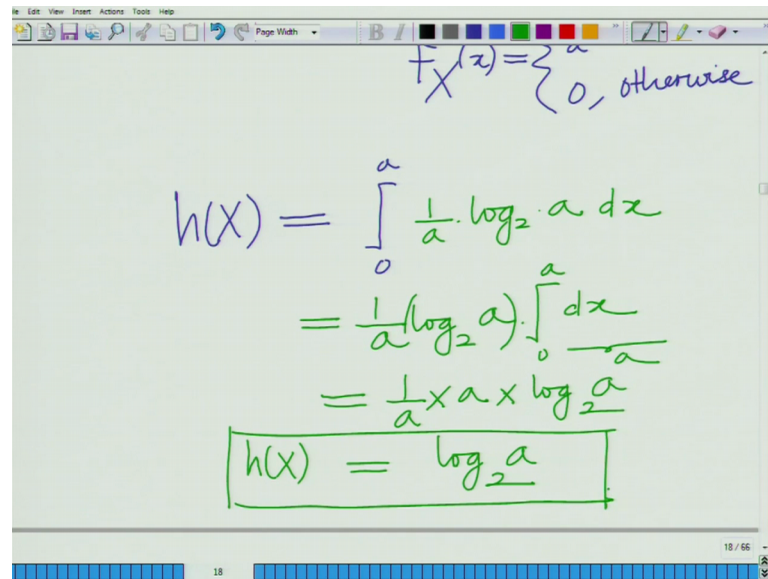 le Edit View Insert Actions Tools Help
Page Width B I
f_X(x) = { a
0, otherwise
h(X) = ∫₀ᵃ 1/a · log₂ · a dx
= 1/a (log₂ a) · ∫₀ᵃ dx
a
= 1/a × a × log₂ a
h(X) = log₂ a
18 / 66
18